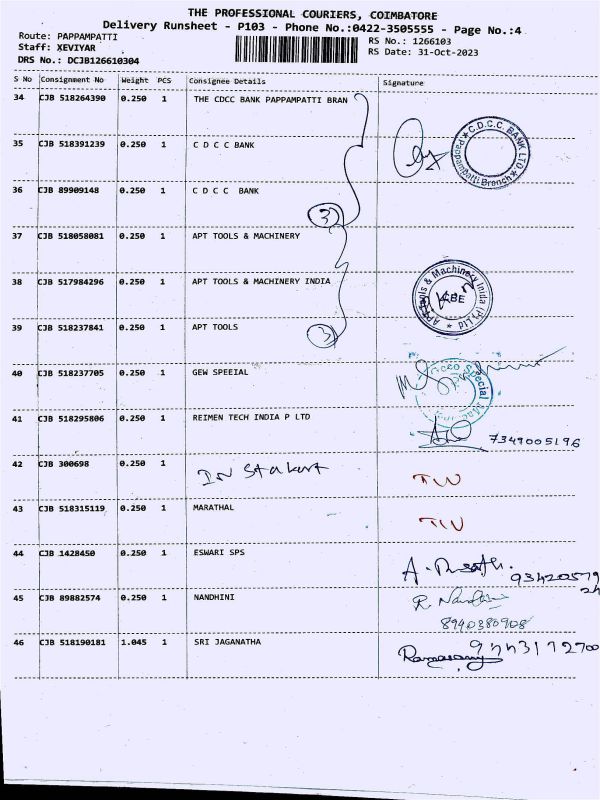 THE PROFESSIONAL COURIERS, COIMBATORE
Delivery Runsheet - P103 - Phone No.:0422-3505555 - Page No.:4
Route: PAPPAMPATTI
RS No.: 1266103
Staff: XEVIYAR
RS Date: 31-Oct-2023
DRS No.: DCJB126610304
S No Consignment No Weight PCS Consignee Details Signature
34 CJB 518264390 0.250 1 THE CDCC BANK PAPPAMPATTI BRAN
C.D.C.C. BANK LTD
Pappampatti Branch
35 CJB 518391239 0.250 1 C D C C BANK
36 CJB 89909148 0.250 1 C D C C BANK
3
37 CJB 518058081 0.250 1 APT TOOLS & MACHINERY
38 CJB 517984296 0.250 1 APT TOOLS & MACHINERY INDIA
APT Tools & Machinery India (P)
CBE
39 CJB 518237841 0.250 1 APT TOOLS
3
40 CJB 518237705 0.250 1 GEW SPEEIAL
Special
41 CJB 518295806 0.250 1 REIMEN TECH INDIA P LTD
7349005196
42 CJB 300698 0.250 1
43 CJB 518315119 0.250 1 MARATHAL
44 CJB 1428450 0.250 1 ESWARI SPS
45 CJB 89882574 0.250 1 NANDHINI
R. Nandhini
8940380908
46 CJB 518190181 1.045 1 SRI JAGANATHA
Ramasamy